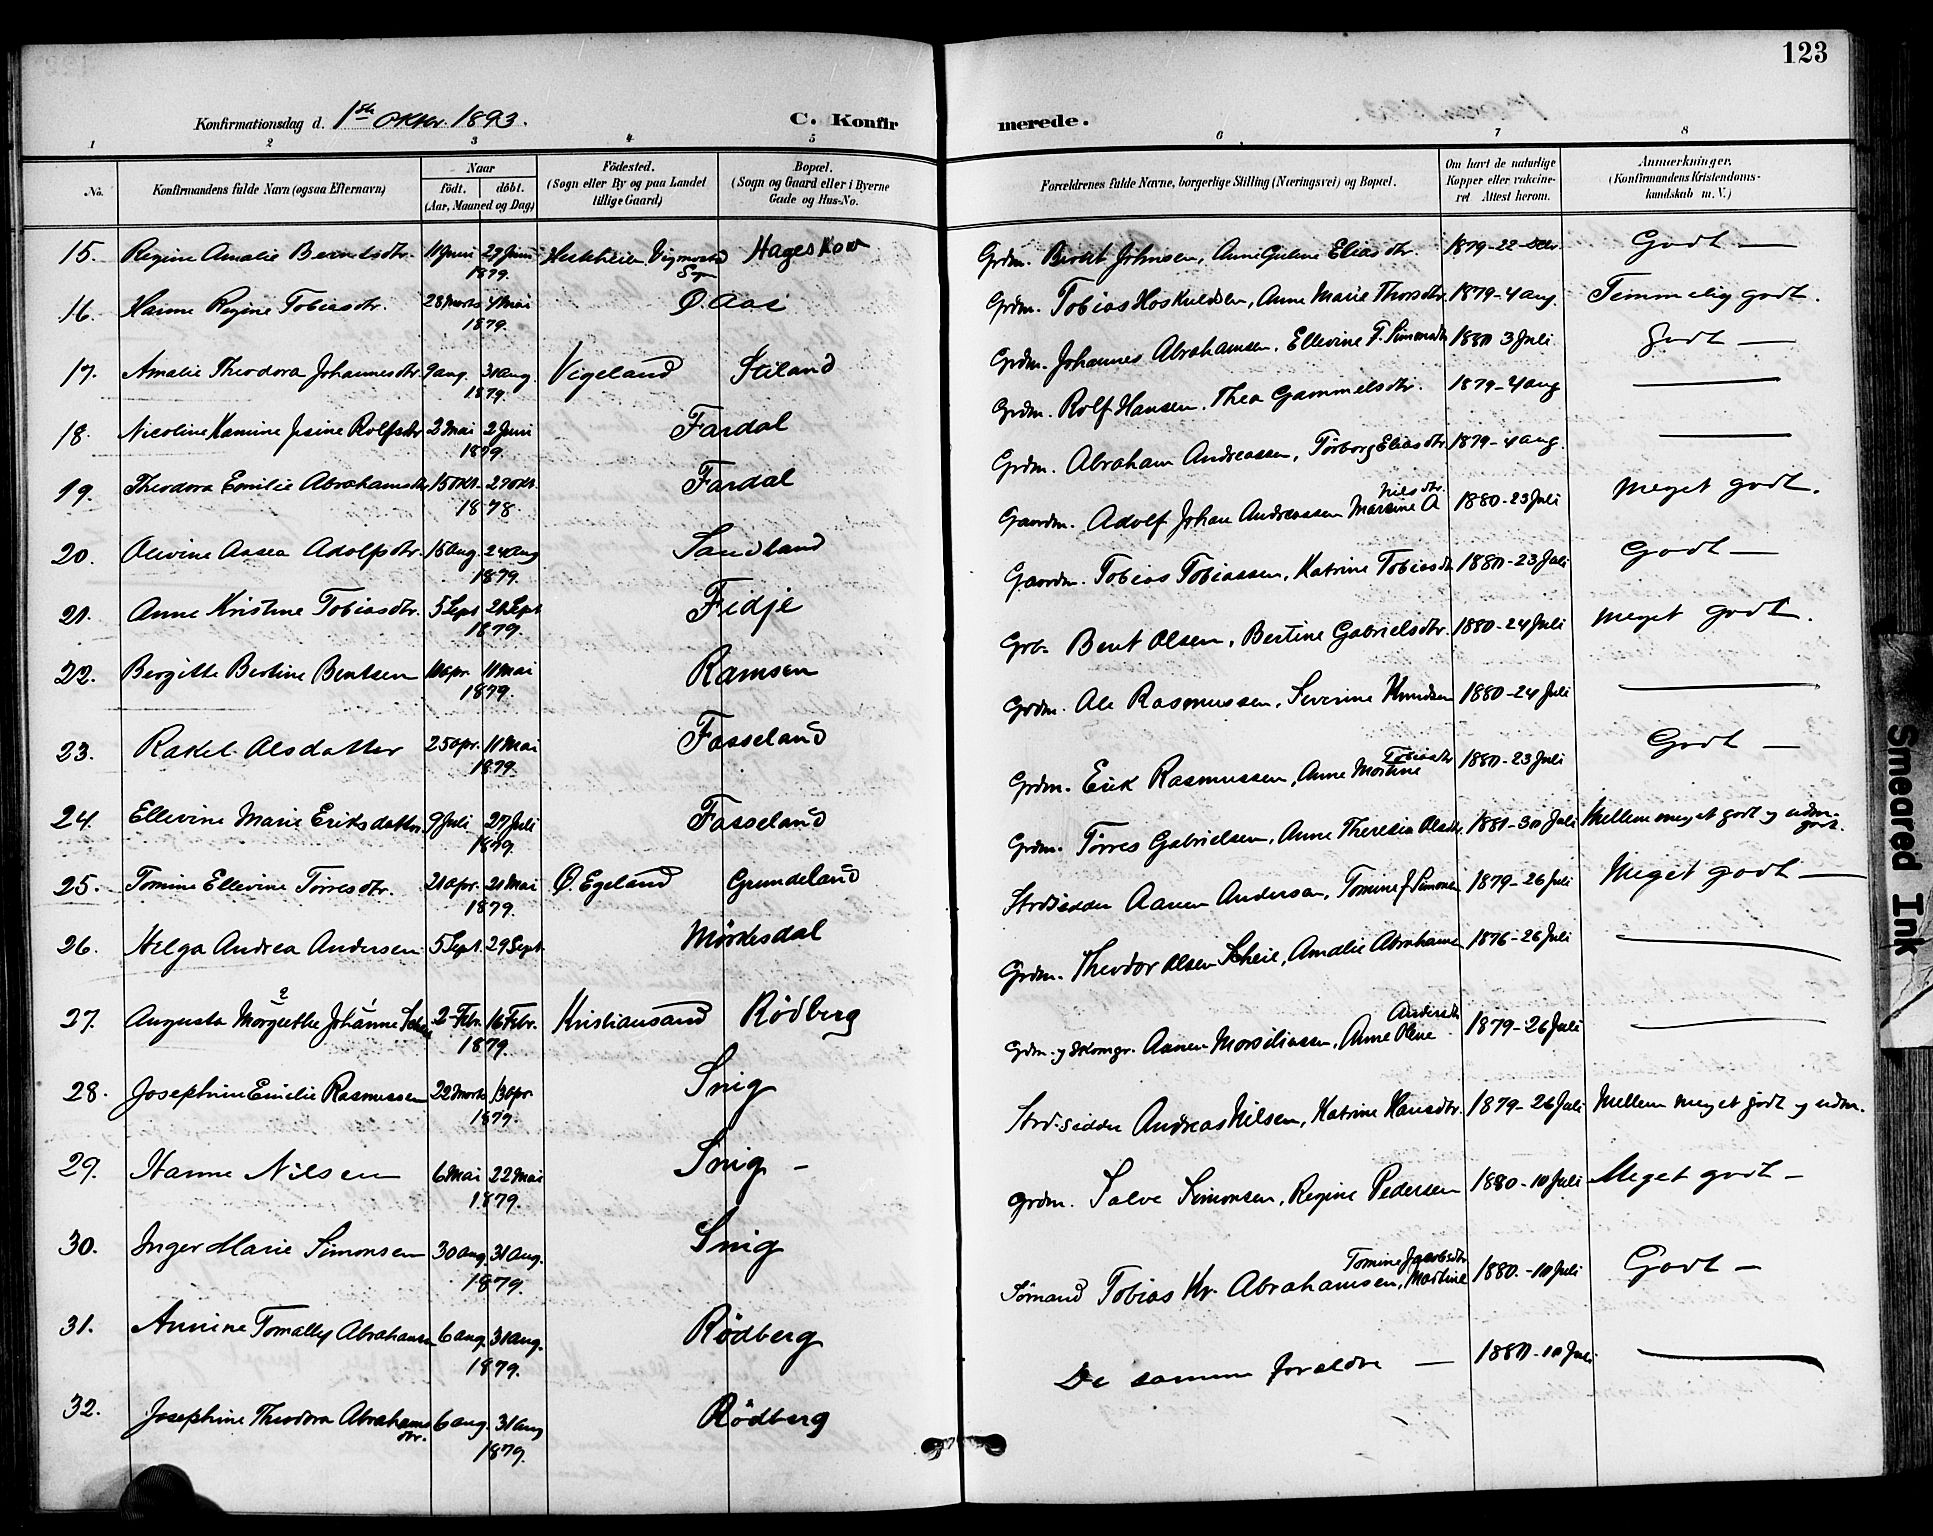 123
Konfirmationsdag d. 1ste Oktbr. 1893.
C. Konfirmerede.
1 2 3 4 5 6 7 8
No.
Konfirmandens fulde Navn (ogsaa Efternavn)
Naar
födt. döbt.
(Aar, Maaned og Dag)
Födested.
(Sogn eller By og paa Landet
tillige Gaard)
Bopæl.
(Sogn og Gaard eller i Byerne
Gade og Hus-No.
Forældrenes fulde Navne, borgerlige Stilling (Næringsvei) og Bopæl.
Om havt de naturlige
Kopper eller vakcine-
ret Attest herom.
Anmærkninger.
(Konfirmandens Kristendoms-
kundskab m. V.)
15. Regine Amalie Berntsdtr. 11 Juni 27 Juni 1879. Vigmostad Sg Hageskov
Grdm. Berndt Johnsen, Anne Guline Eliasdtr. 1879-22 Godt —
16. Hanne Regine Tobiasdtr. 28 Marts 4 Mai 1879. Ö. Aas
Grdm. Tobias Hoskuldsen, Anne Marie Thorsdtr. 1879-4 aug. Temmelig godt.
17. Amalie Theodora Johannesdtr. 9 aug. 31 aug. 1879. Vigeland Stiland
Grdm. Johannes Abrahamsen, Ellevine T. Simonsdtr 1880 3 Juli Godt —
18. Nicoline Kamine Jesine Rolfsdtr 2 Mai 2 Juni 1879. Fardal
Grdm. Rolf Hansen. Thea Gammelsdtr. 1879-4 aug —
19. Theodora Emilie Abrahamsdtr 15 Okt. 27 Okt. 1878. Fardal
Grdm. Abraham Andreassen, Törborg Eliasdtr. 1879-4 aug. —
20. Olivine Aasea Adolfsdtr. 15 Aug. 24 Aug 1879. Sandland
Gaardm. Adolf Johan Andreassen Martine A Nilsdtr. 1880-23 Juli Meget godt.
21. Anne Kristine Tobiasdtr. 5 Sept 21 Sept 1879. Fidje
Gaardm. Tobias Tobiassen, Katrine Tobiasdtr 1880-23 Juli Godt —
22. Bergitte Bertine Bentsen 11 Mai 1879. Ramsen
Grb. Bent Olsen, Bertine Gabrielsdtr. 1880-24 Juli Meget godt.
23. Rakel Alsdatter 25 apr. 11 Mai 1879. Fasseland
Grdm. Ale Rasmussen, Severine Knudsen 1880-24 Juli —
24. Ellevine Marie Eriksdatter 9 Juli 27 Juli 1879. Fasseland
Grdm. Erik Rasmussen, Anne Martine Tobiasdtr 1880-23 Juli Godt —
25. Tomine Ellevine Törresdtr. 21 apr. 21 Mai 1879. Ö. Egeland Grundeland
Grdm. Törres Gabrielsen, Anne Theresia Olsdtr. 1881-30 Juli Mellem meget godt og udm. godt.
26. Helga Andrea Andersen 5 Sept. 29 Sept. Mörkesdal
Strdsidder Aanen Andersen, Tomine J. Simonsen 1879-26 Juli Meget godt —
27. Augusta Margrethe Johanne 2 Febr. 16 Febr. 1879. Kristiansand Rödberg
Grdm. Theodor Olsen Scheie, Amalie Abrahamsen 1876-26 Juli —
28. Josephine Emilie Rasmussen 22 Marts 13 Apr. 1879. Snig
Grdm. Aanen, Anne Oline Andersdtr 1879-26 Juli —
29. Hanne Nilsen 6 Mai 22 Mai 1879. Snig —
Strdsidder Andreas Nilsen, Katrine Hansdtr. 1879-26 Juli Mellem meget godt og udm.
30. Inger Marie Simonsen 30 aug. 31 aug. 1879. Snig
Grdm. Salve Simonsen, Regine Pedersen 1880-10 Juli Meget godt —
31. Annine Tomally Abrahamsen 6 aug. 31 aug. 1879. Rödberg
Sömand Tobias Kr. Abrahamsen, Martine Tomine Jacobsdtr 1880.-10 Juli Godt —
32. Josephine Theodora Abrahamsdtr. 6 aug. 31 aug 1879. Rödberg
De samme foreldre — 1880-10 Juli —
Smeared Ink